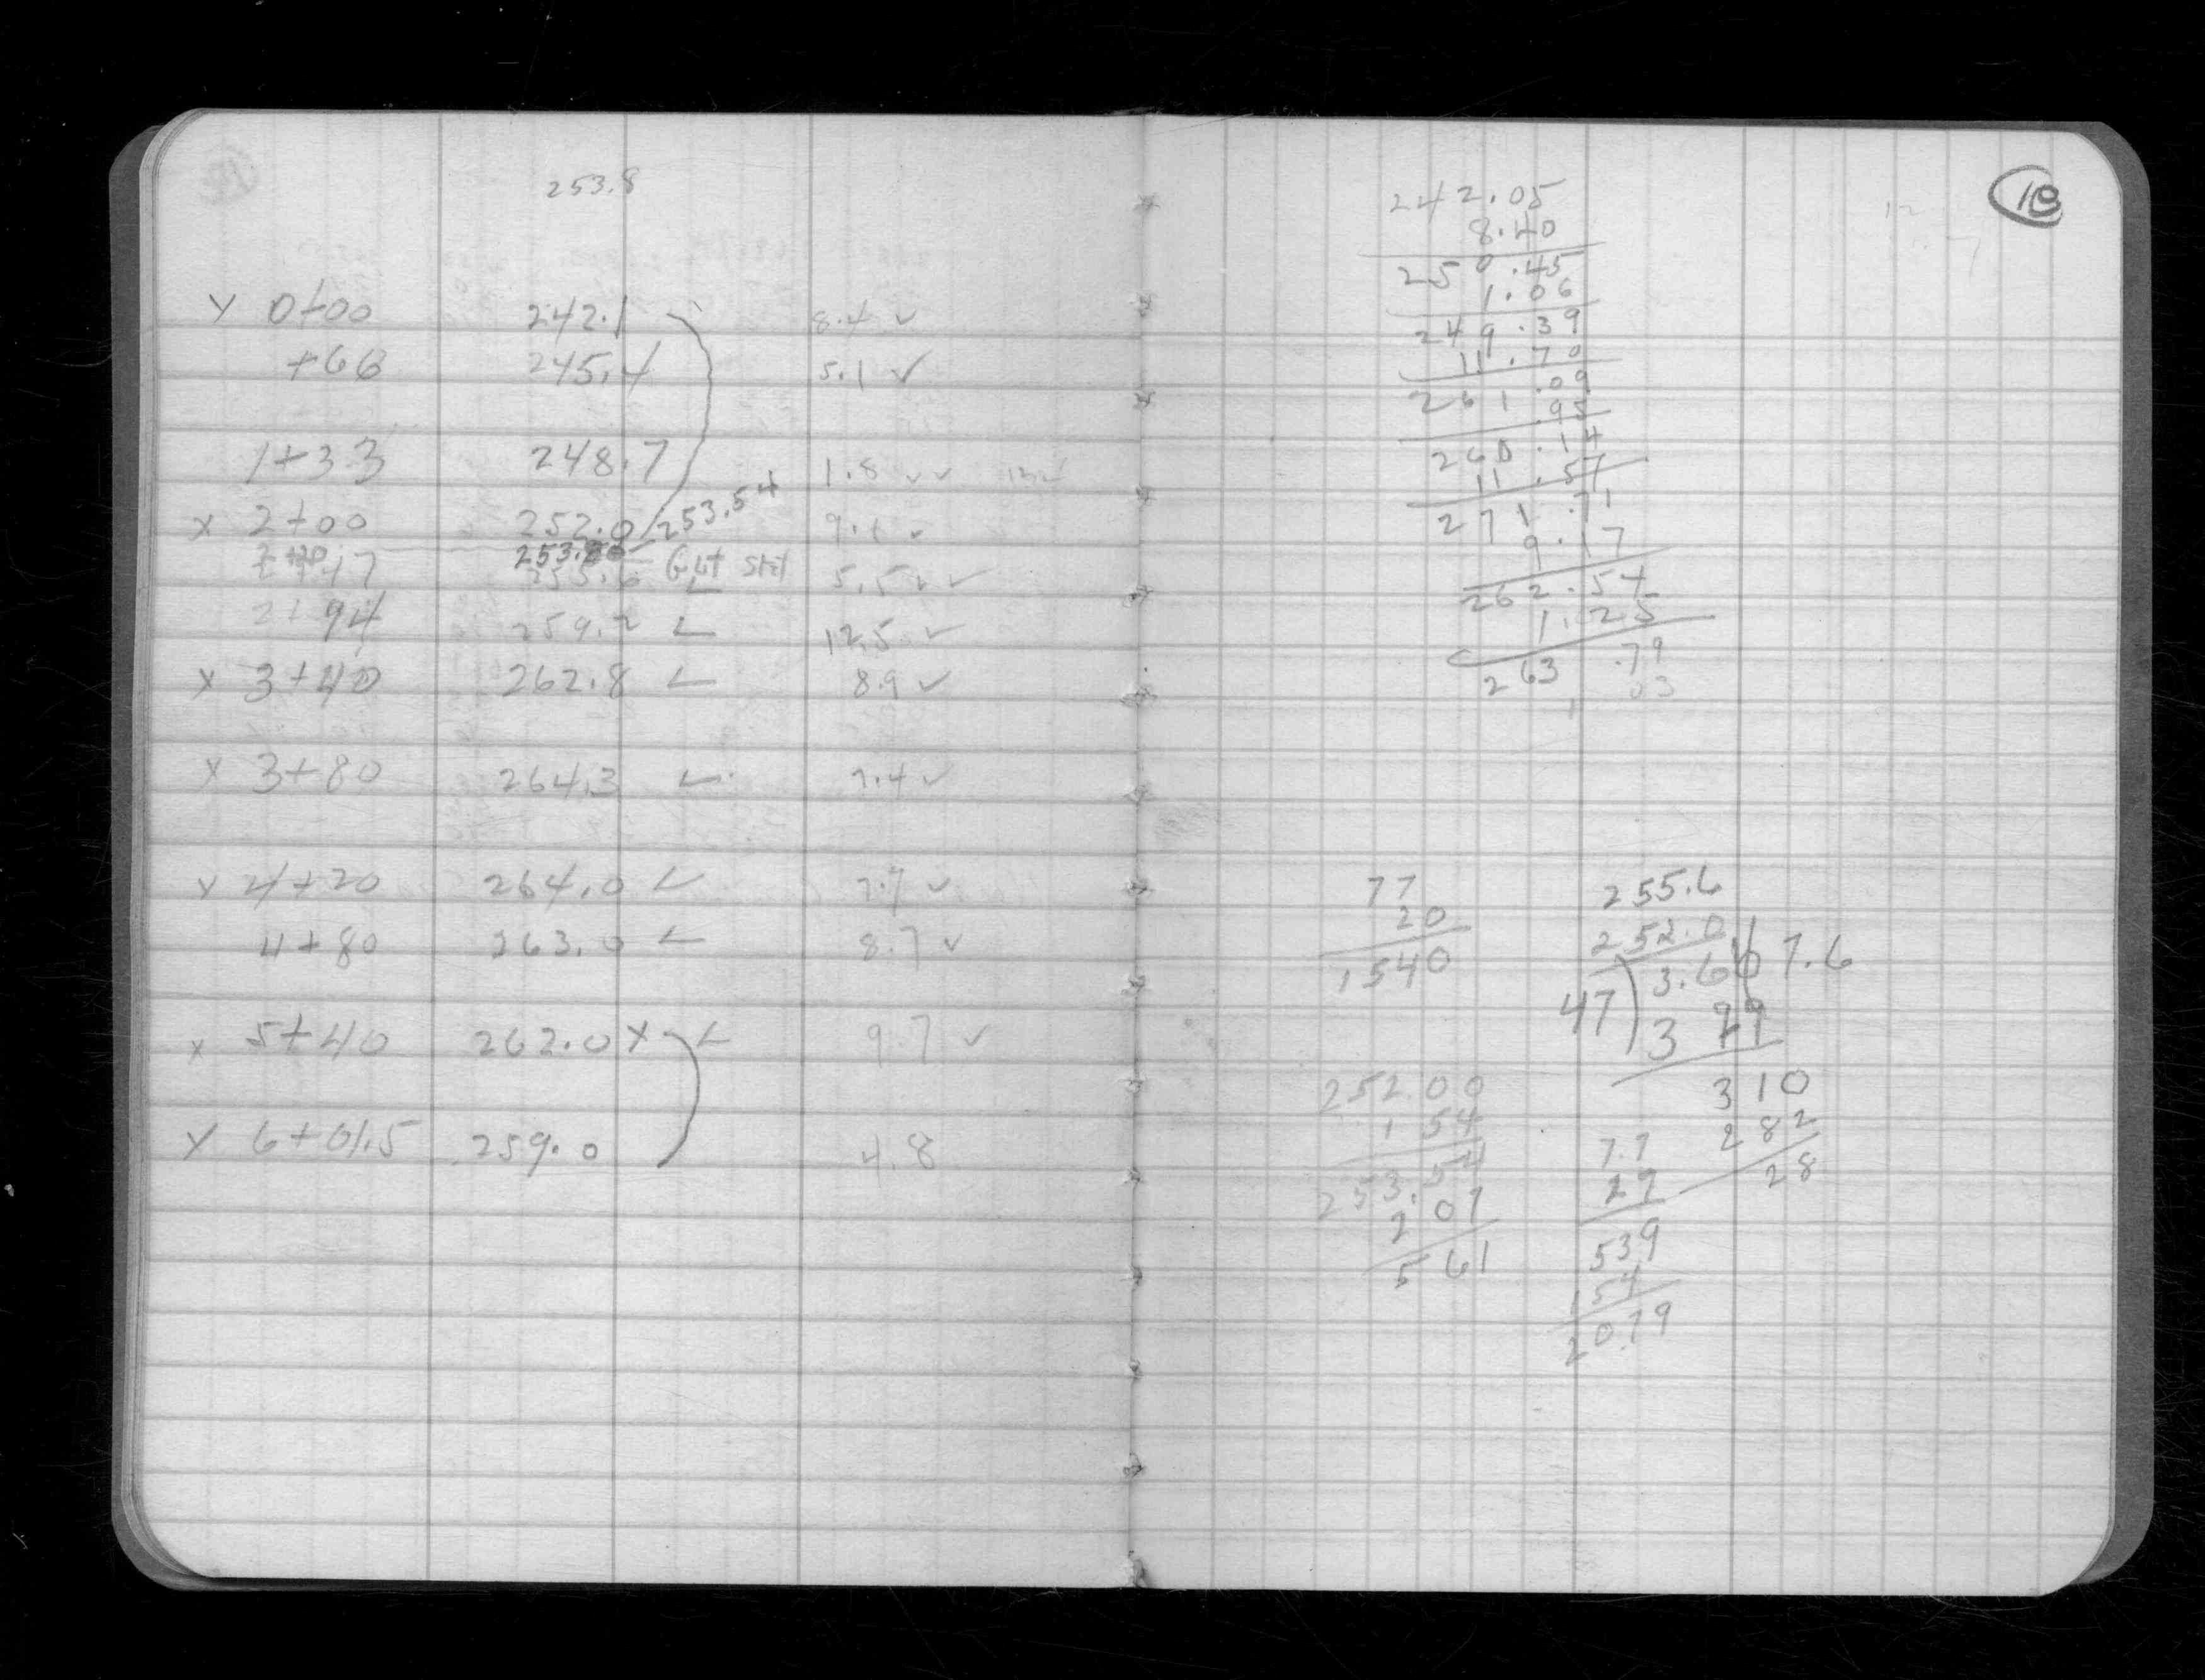 253.8
x 0+00 242.1 8.4 ✓
+66 245.4 5.1 ✓
1+33 248.7 1.8 ✓✓
x 2+00 252.0 253.54 9.1 ✓
253.80 Gut Stil
2+47 255.6 5.5 ✓✓
2+94 259.2 ✓ 12.5 ✓
x 3+40 262.8 ✓ 8.9 ✓
x 3+80 264.3 ✓ 7.4 ✓
x 4+20 264.0 ✓ 7.7 ✓
4+80 263.0 ✓ 8.7 ✓
x 5+40 262.0 x ✓ 9.7 ✓
x 6+01.5 259.0 4.8
18
242.05
8.40
250.45
1.06
249.39
11.70
261.09
.95
260.14
11.57
271.71
9.17
262.54
1.25
263.79
03
77
20
1540
252.00
1 54
253.54
2 07
5 61
255.6
252.0
47 ) 3.60 7.6
3 29
310
282
28
7.7
27
539
154
20.79